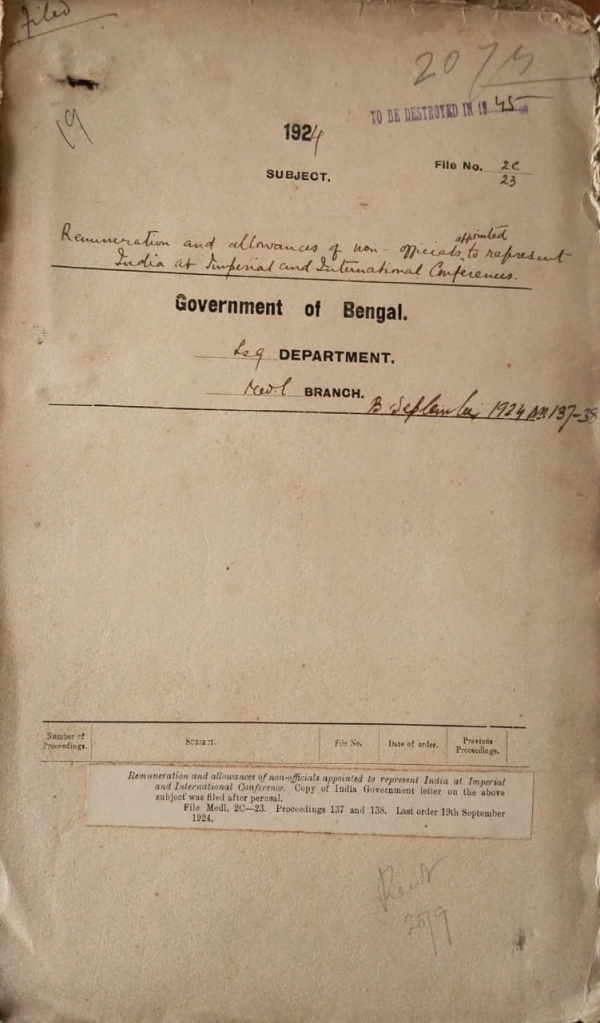 filed
19
TO BE DESTROYED IN 1945
1924
SUBJECT.
File No. 2C
23
Remuneration and allowances of non-officials appointed to represent
India at Imperial and International Conferences.
Government of Bengal.
DEPARTMENT.
Medl BRANCH.
B. September 1924 137-38
Number of
Proceedings.
SUBJECT.
File No.
Date of order.
Previous
Proceedings.
Remuneration and allowances of non-officials appointed to represent India at Imperial
and International Conference. Copy of India Government letter on the above
subject was filed after perusal.
File Medl. 2C—23. Proceedings 137 and 138. Last order 19th September
1924.